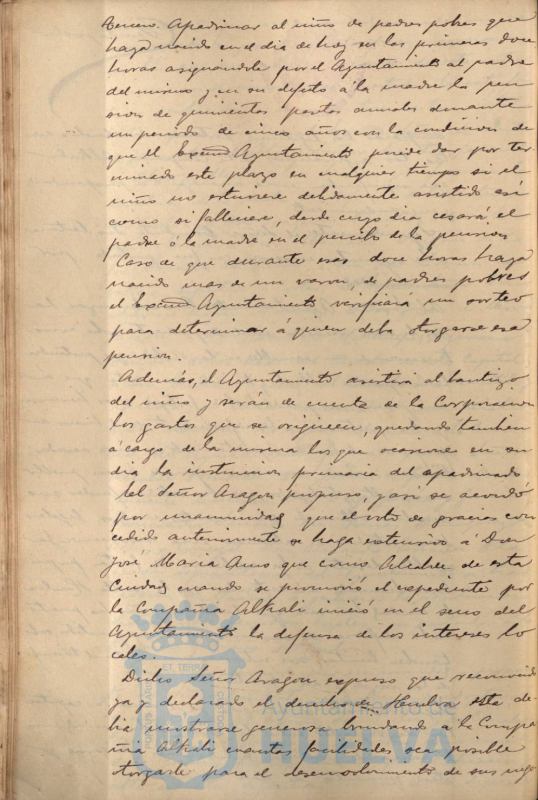 tercero. Apadrinar al niño de padres pobres que
haya nacido en el dia de hoy en las primeras doce
horas asignándole por el Ayuntamiento al padre
del mismo y en su defecto á la madre la pen
sion de quinientas pesetas anuales durante
un periodo de cinco años con la condicion de
que el Excmo Ayuntamiento puede dar por ter
minado este plazo en cualquier tiempo si el
niño no estuviere debidamente asistido asi
como si falleciere, desde cuyo dia cesará el
padre ó la madre en el percibo de la pension
Caso de que durante esas doce horas haya
nacido mas de un varon, de padres pobres
el Excmo Ayuntamiento verificará un sorteo
para determinar á quien deba otorgarse esa
pension.
Además, el Ayuntamiento asistirá al bautizo
del niño y serán de cuenta de la Corporacion
los gastos que se originen, quedando tambien
á cargo de la misma los que ocasione en su
dia la instruccion primaria del apadrinado
El Señor Aragon propuso, y asi se acordó
por unanimidad que el voto de gracias con
cedido anteriormente se haga extensivo á Don
José Maria Amo que como Alcalde de esta
Ciudad cuando se promovió el expediente por
la Compañia Alkali inició en el seno del
Ayuntamiento la defensa de los intereses lo
cales.
Dicho Señor Aragon expuso que reconoci
ya y declarado el derecho de Huelva esta de
bia mostrarse generosa brindando á la Compa
ñia Alkali cuantas facilidades sea posible
otorgarle para el desenvolvimiento de sus nego
Ayuntamiento de
HUELVA